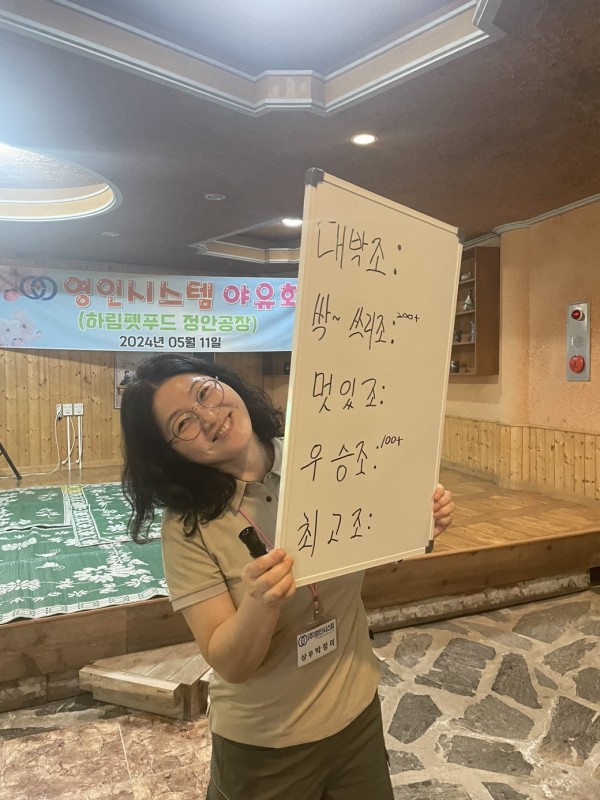 영인시스템 야유회
(하림펫푸드 정안공장)
2024년 05월 11일
대박조:
싹~ 쓰리조: 200+
멋있조:
우승조: 100+
최고조:
(주)영인시스템
상무 박동미